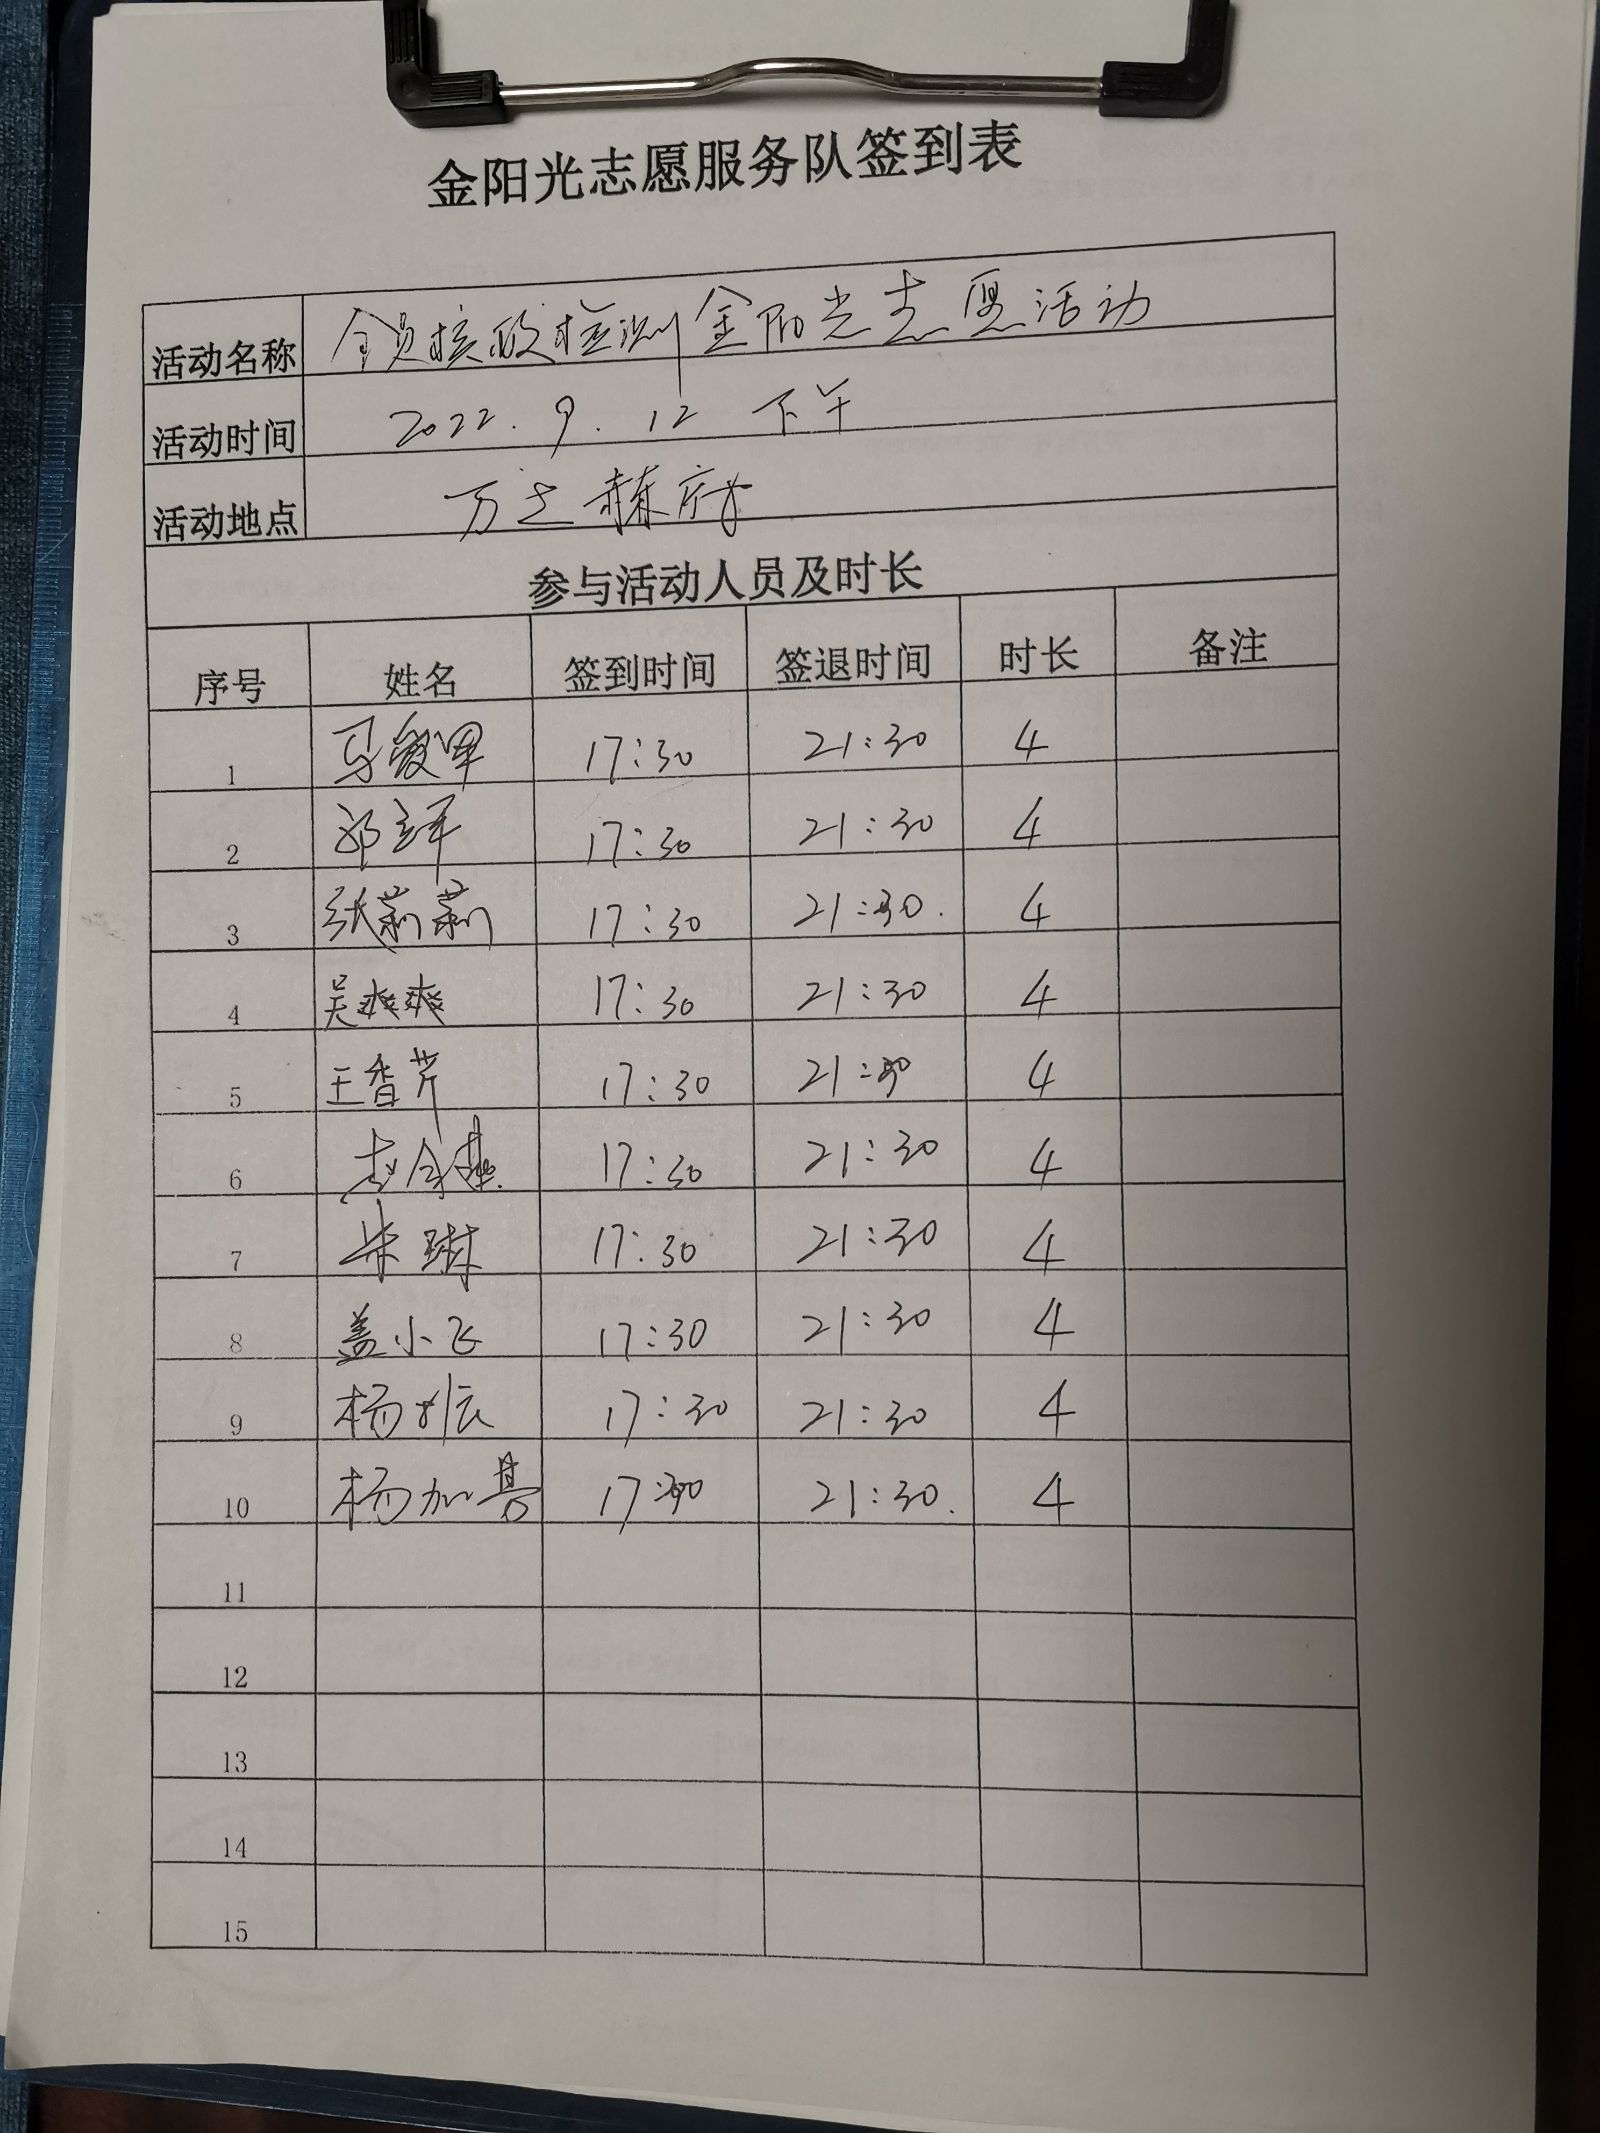 金阳光志愿服务队签到表
活动名称 全员核酸检测金阳光志愿活动
活动时间 2022.9.12 下午
活动地点 万之赫府
参与活动人员及时长
序号 姓名 签到时间 签退时间 时长 备注
1 17:30 21:30 4
2 17:30 21:30 4
3 张莉莉 17:30 21:30. 4
4 吴爽爽 17:30 21:30 4
5 王香芹 17:30 21:30 4
6 17:30 21:30 4
7 朱琳 17:30 21:30 4
8 盖小飞 17:30 21:30 4
9 杨 17:30 21:30 4
10 杨加 17:30 21:30. 4
11
12
13
14
15